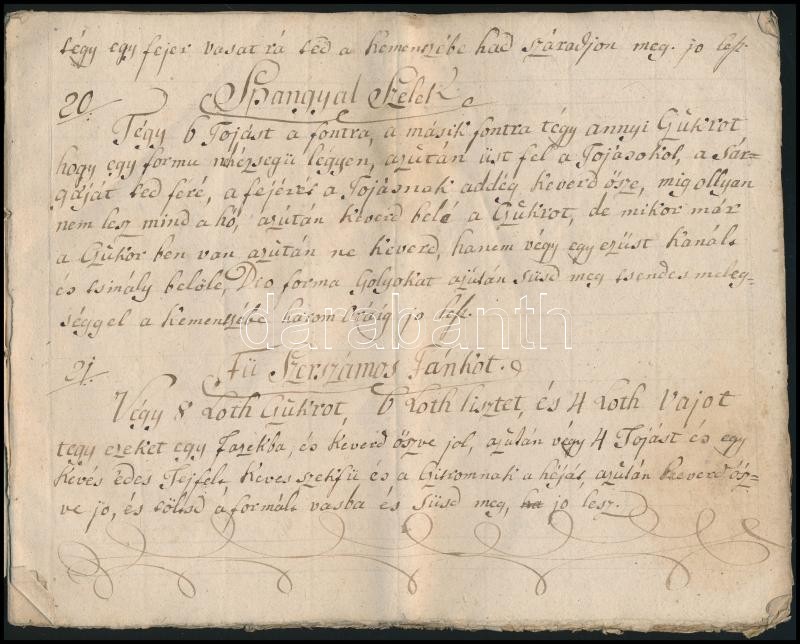 tégy egy fejer vasat rá ted a kemenczébe had száradjon meg. jo lesz.
20. Spangyal Szelek
Tégy 6 Tojást a fontra, a másik fontra tégy annyi Gűkrot
hogy egy formu nhézsegü légyen, azután üst fel a Tojásokol, a sár=
gáját ted féré, a fejérés a Tojásnak addég keverd ősze, mig ollyan
nem lesz mind a hó, azután keverd belé a Gűkrot, de mikor már
a Gűkor ben van azután ne keverd, hanem végy egy ezüst kanált
és tsinály belöle, Dio forma Golyokat azután süsd meg tsendes meleg=
séggel a kemenczébe három óráig jo lesz.
darabanth
21. Fü Szerszámos Fánkot.
Végy 8 Loth Gűkrot, 6 Loth lisztet, és 4 Loth Vajot
tegy ezeket egy Fazékba, és keverd öszve jol, azután végy 4 Tojást és egy
kevés édes Tejfelt keves szekfü és a Citromnak a héját, azután keverd ösz=
ve jo, és töltsd a formált vasba és süsd meg, jo lesz.